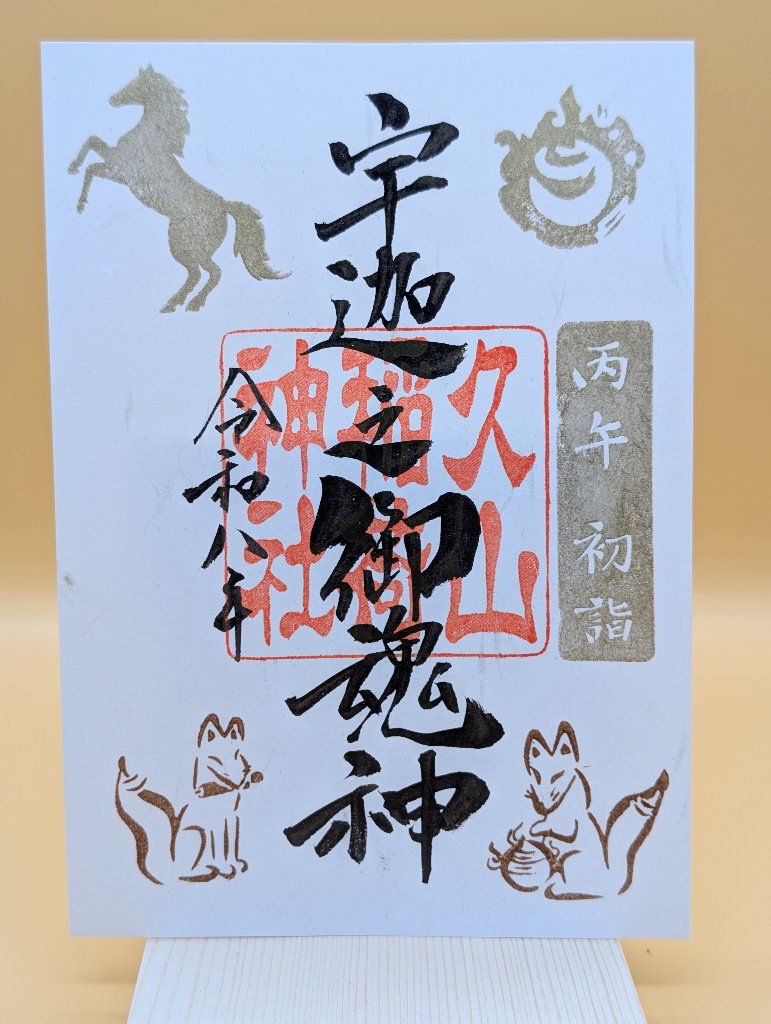 丙午 初詣
宇迦之御魂神
久山
稲荷
神社
令和八年